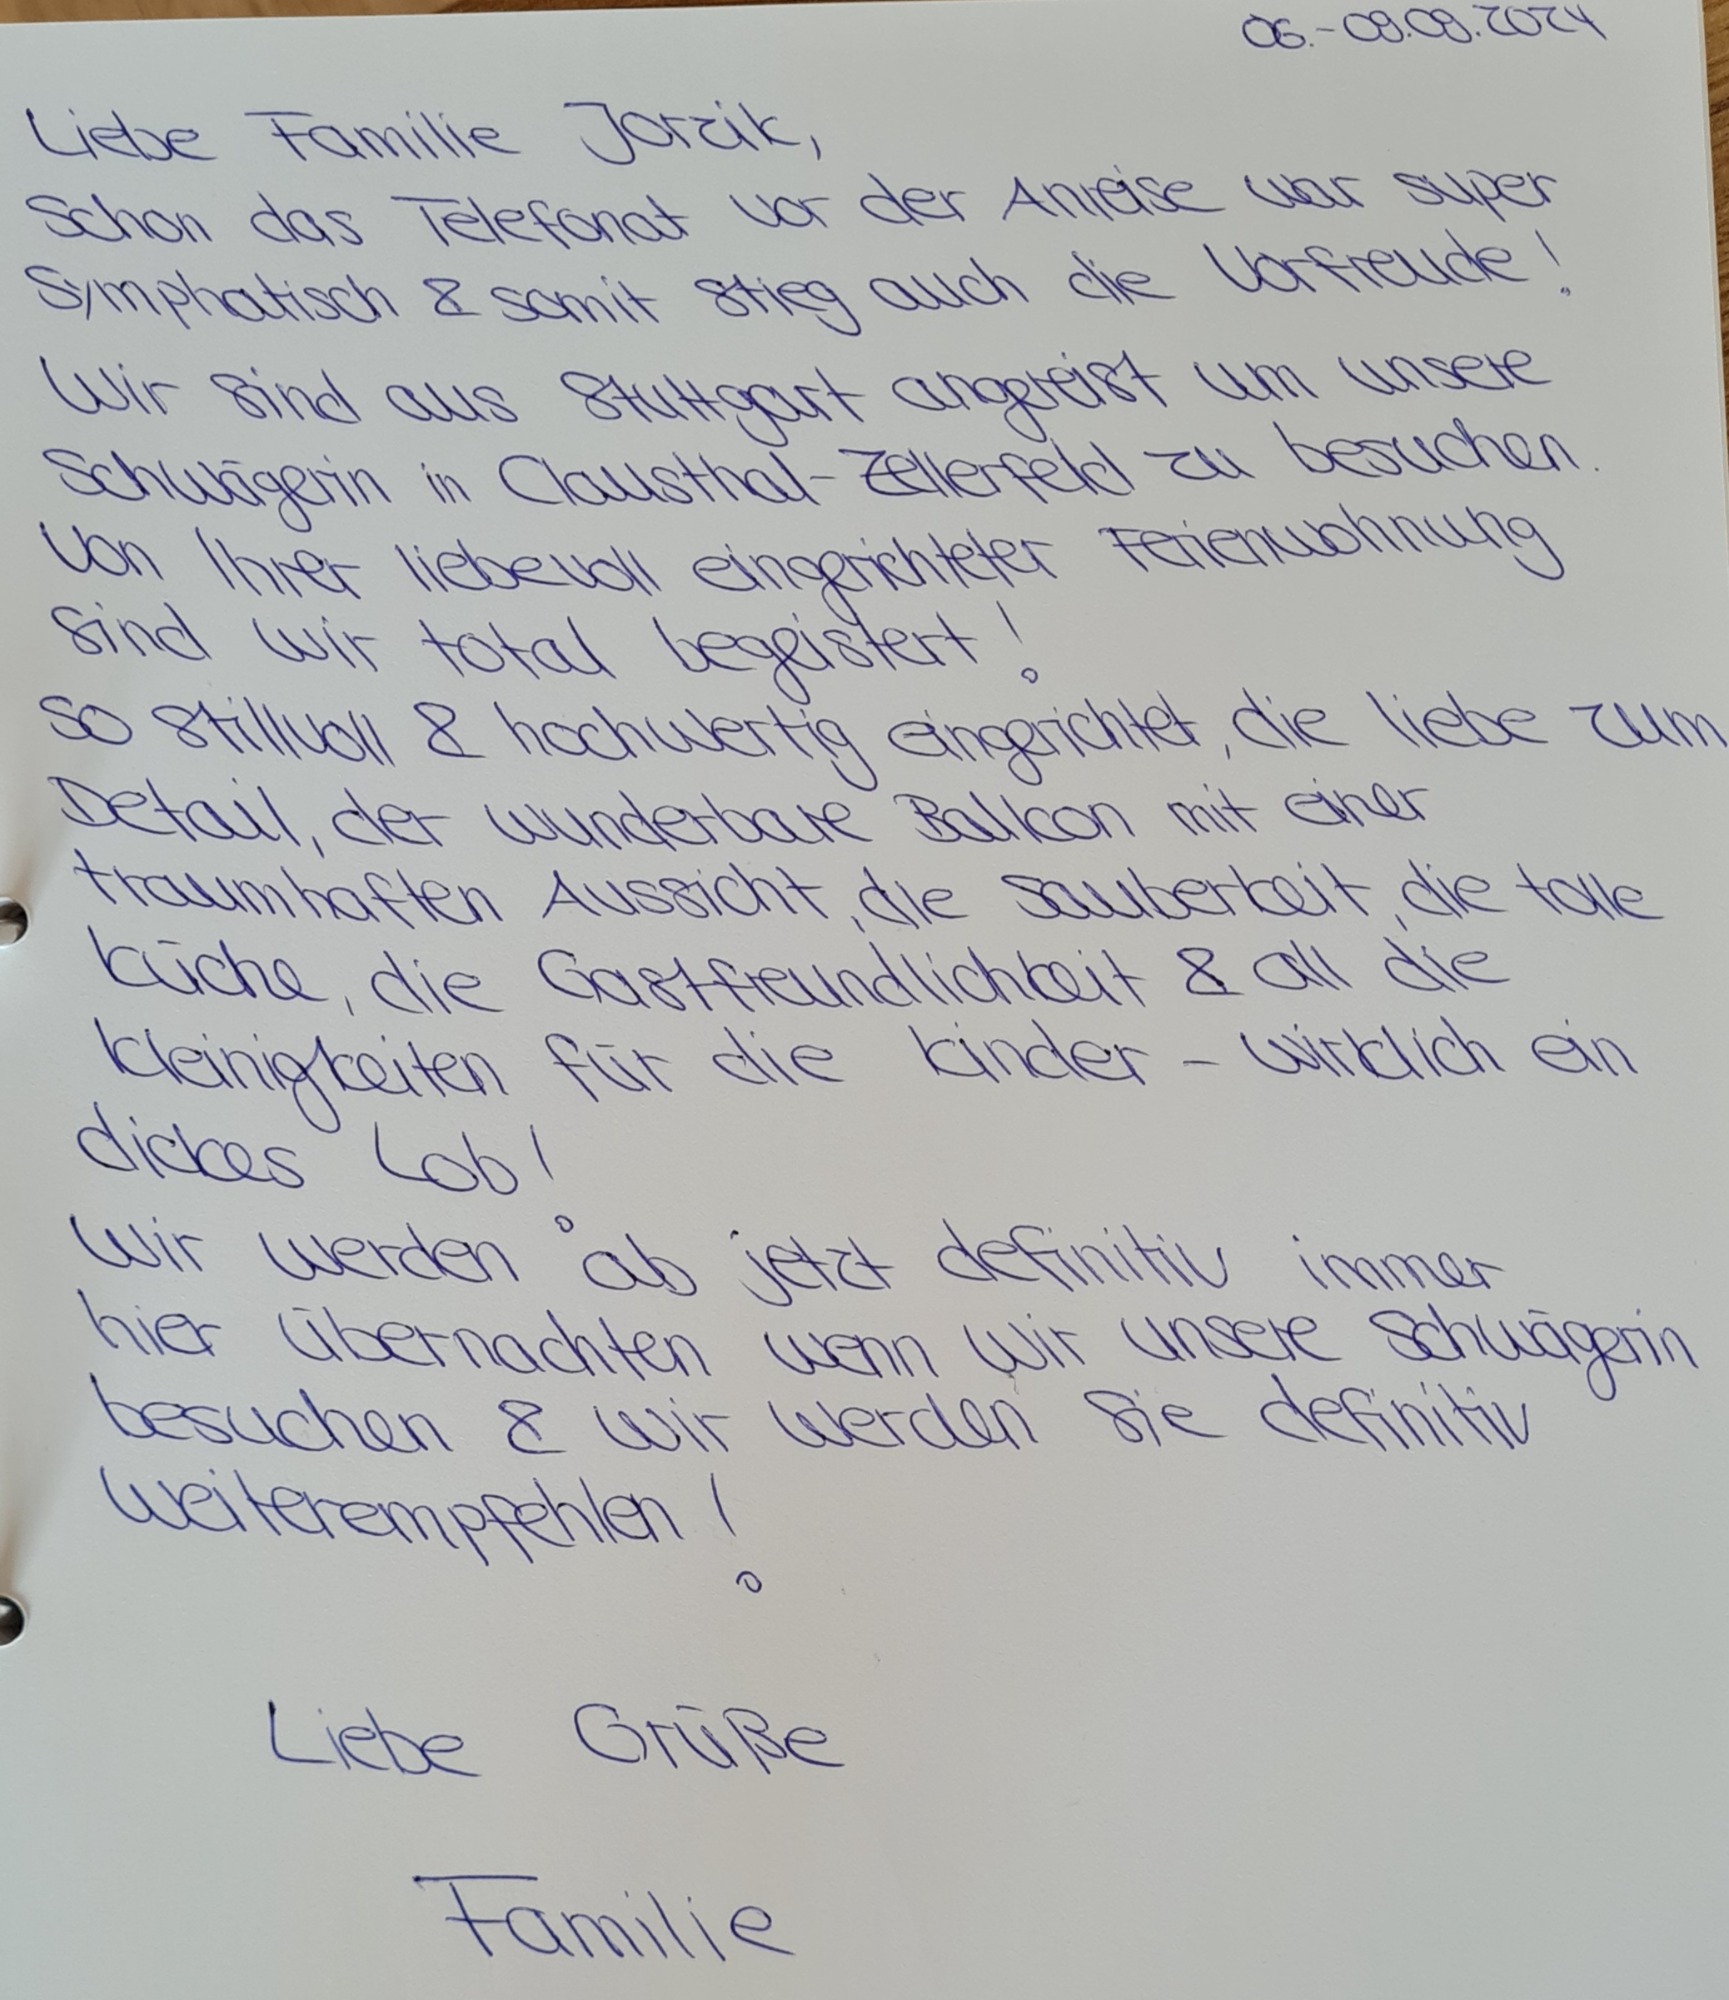 06.-08.09.2024
Liebe Familie Jorzik,
Schon das Telefonat vor der Anreise war super
Symphatisch & somit stieg auch die Vorfreude!
Wir sind aus Stuttgart angereist um unsere
Schwägerin in Clausthal-Zellerfeld zu besuchen.
Von Ihrer liebevoll eingerichteter Ferienwohnung
sind wir total begeistert!
So stillvoll & hochwertig eingerichtet, die liebe zum
Detail, der wunderbare Balkon mit einer
traumhaften Aussicht, die Sauberkeit, die tolle
Küche, die Gastfreundlichkeit & all die
Kleinigkeiten für die Kinder - wirklich ein
dickes Lob!
Wir werden ab jetzt definitiv immer
hier übernachten wenn wir unsere Schwägerin
besuchen & wir werden Sie definitiv
weiterempfehlen!
Liebe Grüße
Familie